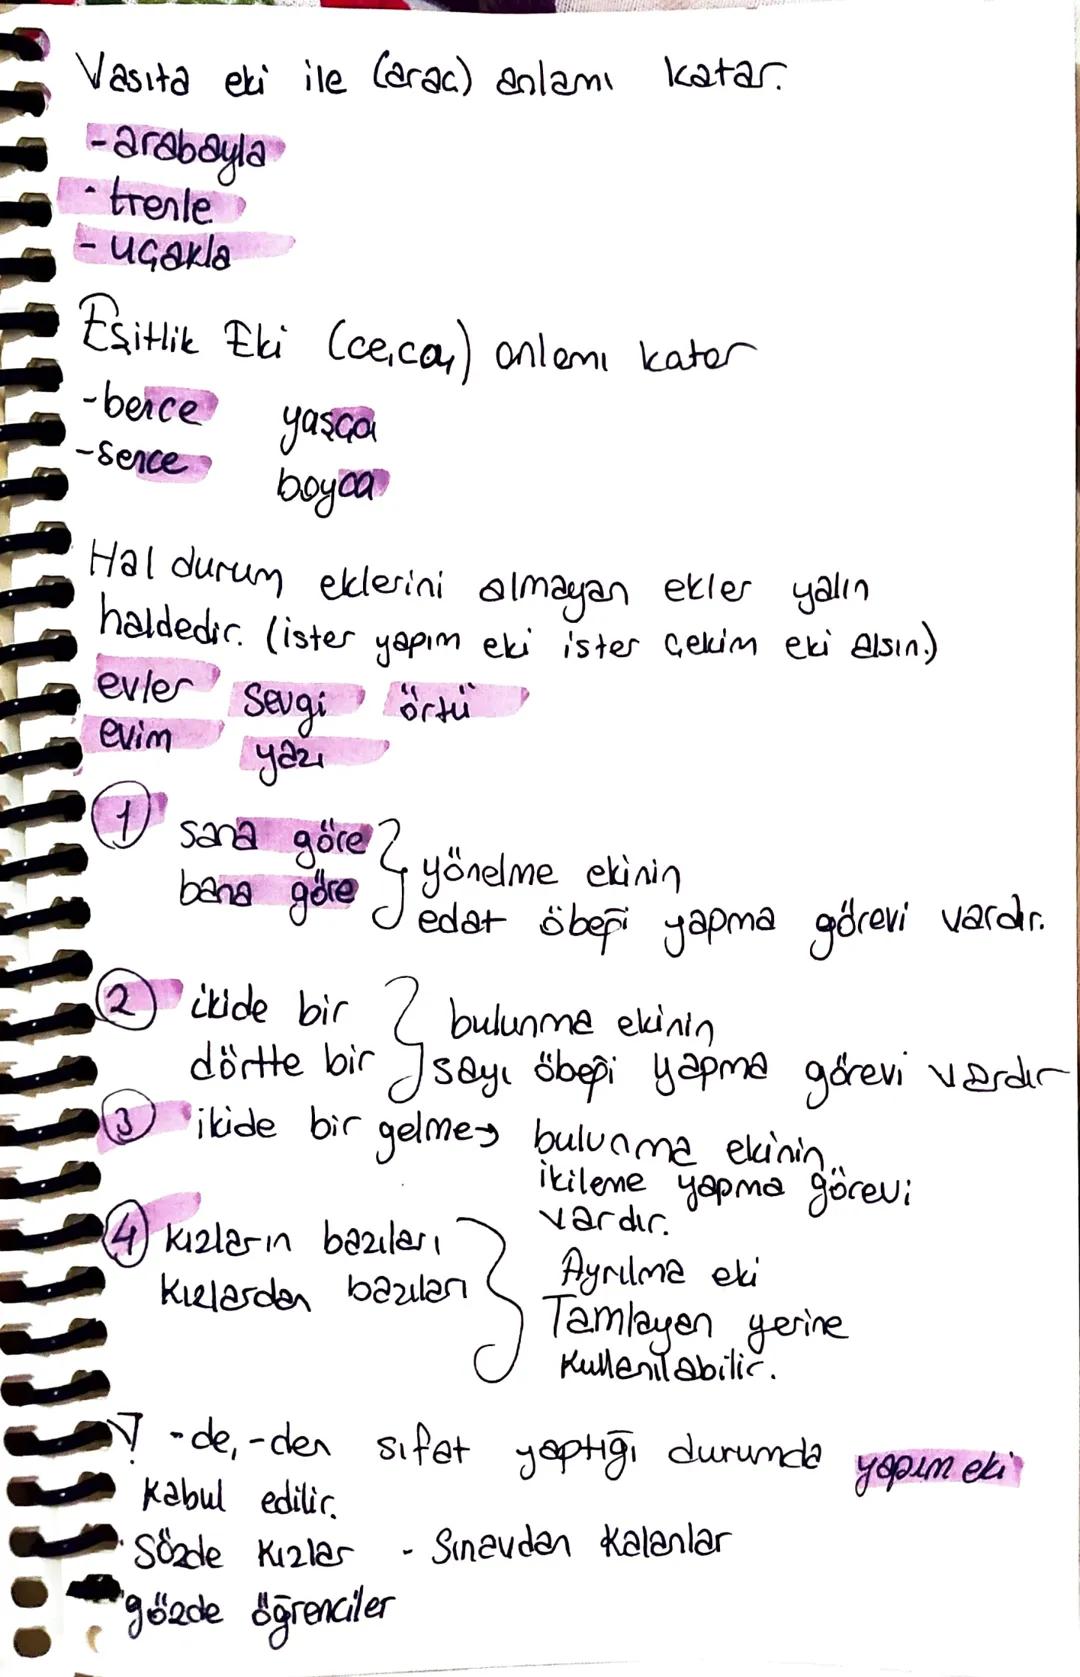 Vasıta eki ile (araç) anlamı katar.
-arabayla
- trenle
- uçakla
Eşitlik Eki (ce,ca,) anlamı katar
-bence yaşça
-sence boyca
Hal durum eklerini almayan ekler yalın
haldedir. (ister yapım eki ister çekim eki alsın.)
evler sevgi örtü
evim yazı
1 sana göre
bana göre
yönelme ekinin
edat öbeği yapma görevi vardır.
2 ikide bir
dörtte bir
bulunma ekinin
sayı öbeği yapma görevi vardır
3 ikide bir gelme→ bulunma ekinin
ikileme yapma görevi
vardır.
4 kızların bazıları
kızlardan bazıları
Ayrılma eki
Tamlayan yerine
kullanılabilir.
-de, -den sıfat yaptığı durumda yapım eki
kabul edilir.
Sözde kızlar - Sınavdan kalanlar
gözde öğrenciler